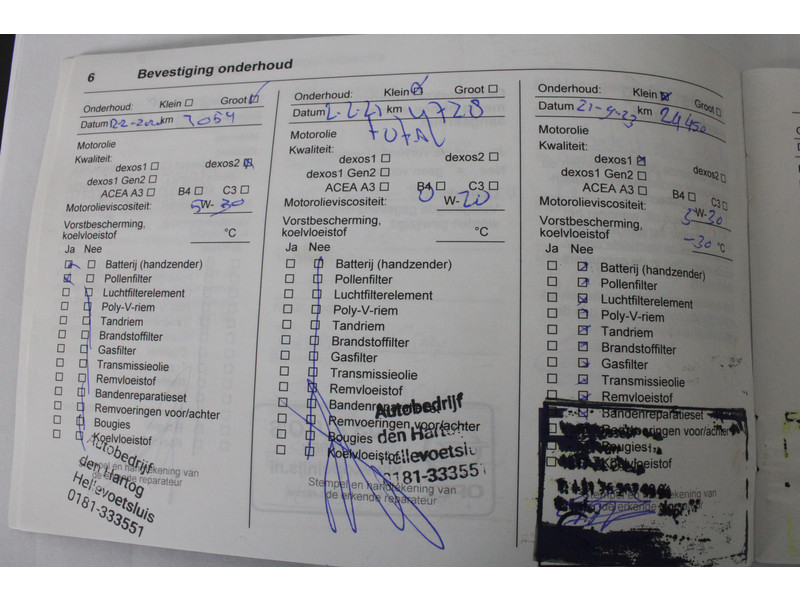 6 Bevestiging onderhoud
Onderhoud: Klein Groot
Datum km 7054
Motorolie
Kwaliteit:
dexos1 dexos2
dexos1 Gen2
ACEA A3 B4 C3
Motorolieviscositeit: 5W-30
Vorstbescherming,
koelvloeistof °C
Ja Nee
Batterij (handzender)
Pollenfilter
Luchtfilterelement
Poly-V-riem
Tandriem
Brandstoffilter
Gasfilter
Transmissieolie
Remvloeistof
Bandenreparatieset
Remvoeringen voor/achter
Bougies
Koelvloeistof
Autobedrijf
den Hartog
Hellevoetsluis
0181-333551
Stempel en handtekening van
de erkende reparateur
Onderhoud: Klein Groot
Datum km 4728
Motorolie TOTAL
Kwaliteit:
dexos1 dexos2
dexos1 Gen2
ACEA A3 B4 C3
Motorolieviscositeit: 0 W-20
Vorstbescherming,
koelvloeistof °C
Ja Nee
Batterij (handzender)
Pollenfilter
Luchtfilterelement
Poly-V-riem
Tandriem
Brandstoffilter
Gasfilter
Transmissieolie
Remvloeistof
Bandenreparatieset
Remvoeringen voor/achter
Bougies
Koelvloeistof
Autobedrijf
den Hartog
Hellevoetsluis
0181-333551
Stempel en handtekening van
de erkende reparateur
Onderhoud: Klein Groot
Datum 21-9-23 km 24450
Motorolie
Kwaliteit:
dexos1 dexos2
dexos1 Gen2
ACEA A3 B4 C3
Motorolieviscositeit: 5W-30
Vorstbescherming,
koelvloeistof -30 °C
Ja Nee
Batterij (handzender)
Pollenfilter
Luchtfilterelement
Poly-V-riem
Tandriem
Brandstoffilter
Gasfilter
Transmissieolie
Remvloeistof
Bandenreparatieset
Remvoeringen voor/achter
Bougies
Koelvloeistof
Stempel en handtekening van
de erkende reparateur